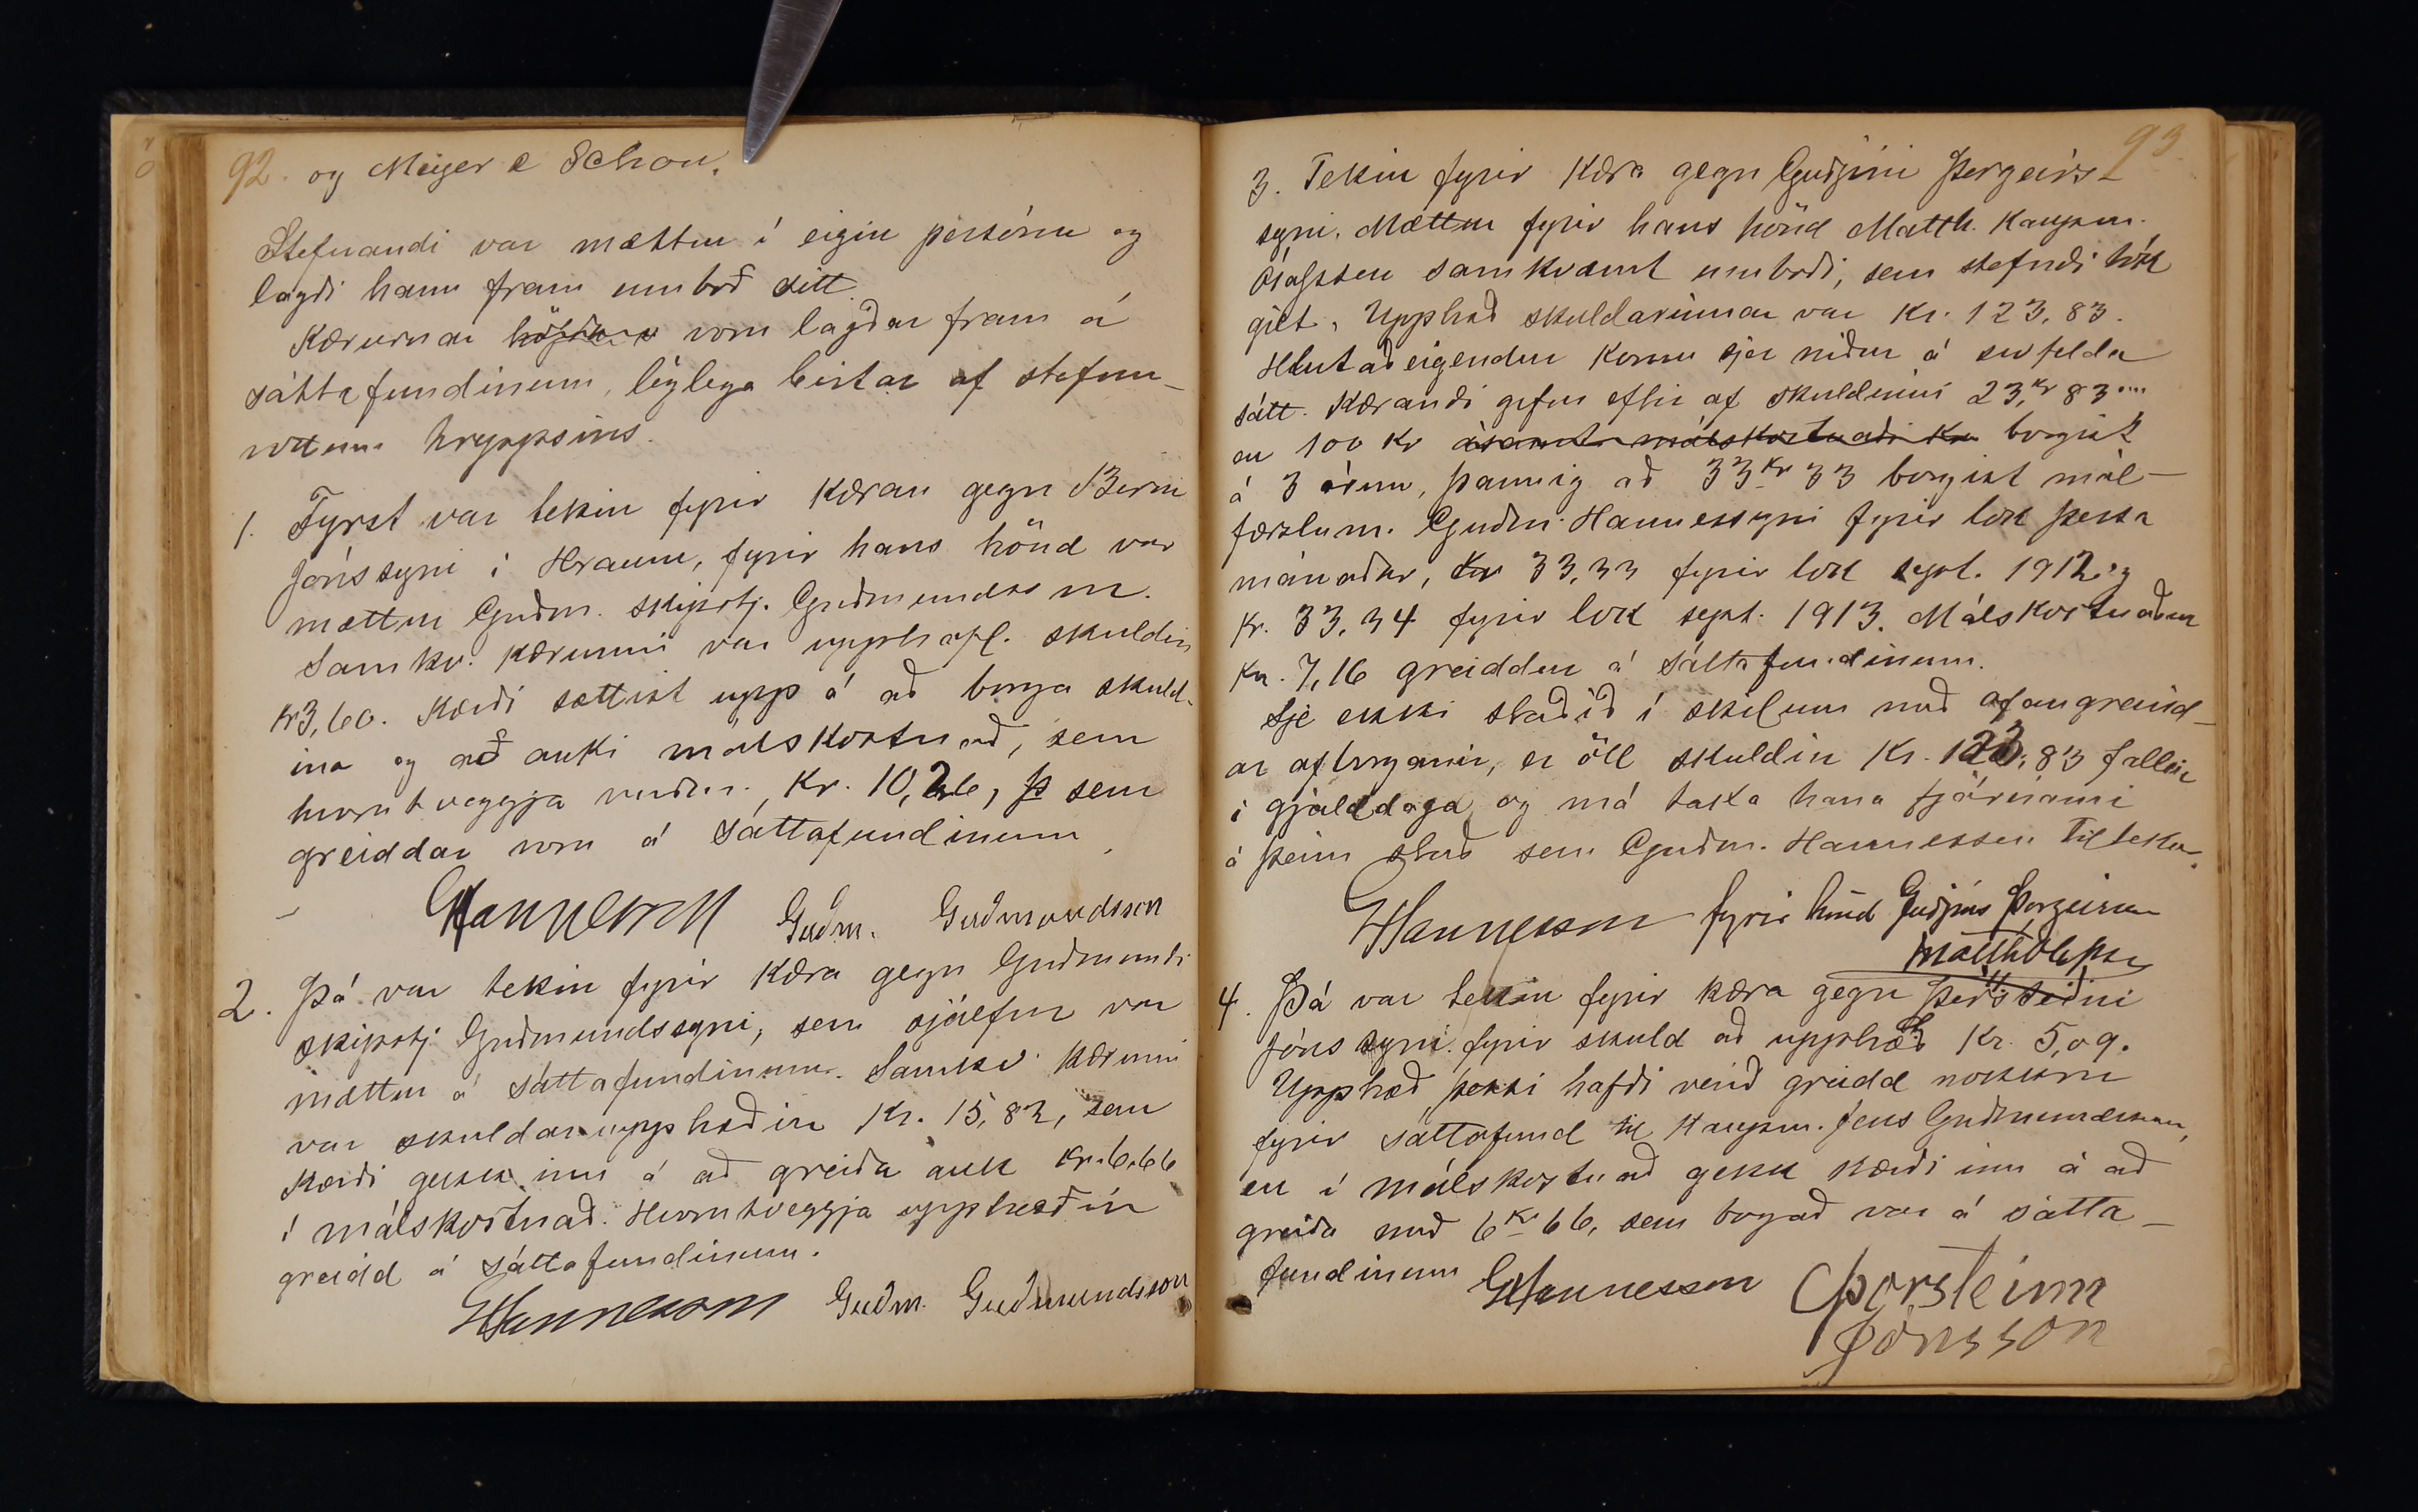 92. og Meyer & Schou.
Stefnandi var mættur í eigin persónu og
lagði hann fram umboð sitt.
Kærurnar voru lagðar fram á
sáttafundinum, löglega birtar af stefnu-
vottum hreppsins.
1. Fyrst var tekin fyrir kæran gegn Birni
Jónssyni í Hrauni, fyrir hans hönd var
mættur Guðm. skipstj. Guðmundsson.
Samkv. kærunni var upphafl. skuldin
kr 3,60. Kærði sættist upp á að borga skuld-
ina og að auki málskostnað, sem
hvorutveggja verður, Kr. 10,26, þ sem
greiddar voru á sáttafundinum.
GHannesson Guðm. Guðmundsson
2. Þá var tekin fyrir kæra gegn Guðmundi
skipstj. Guðmundssyni, sem sjálfur var
mættur á sáttafundinum. Samkv. kærunni
var skuldarupphæðin Kr. 15,82, sem
kærði gekk inn á að greiða auk kr. 6,66
í málskostnað. Hvorutveggja upphæðin
greidd á sáttafundinum.
GHannesson Guðm. Guðmundsson
93
3. Tekin fyrir kæra gegn Guðjóni Þorgeirs-
syni. Mættur fyrir hans hönd Matth. kaupm.
Ólafsson samkvæmt umboði, sem stefndi tók
gilt. Upphæð skuldarinnar var Kr. 123,83.
Hlutaðeigendur komu sjer niður á svofelda
sátt. Kærandi gefur eftir af skuldinni 23, kr 83 au
en 100 kr ásamt málskostnaði kr borgist
á 3 árum, þannig að 33 kr 33 borgist mál-
færslum. Guðm. Hannessyni fyrir lok þessa
mánaðar, kr 33,33 fyrir lok sept. 1912 og
kr. 33,34 fyrir lok sept. 1913. Málskostnaður
kr. 7,16 greiddur á sáttafundinum.
Sje ekki staðið í skilum með afangreind-
ar afborganir, er öll skuldin Kr. 123,83 fallin
í gjalddaga og má taka hana fjárnámi
á þeim stað sem Guðm. Hannesson tiltekur.
GHannesson fyrir hönd Guðjóns Þorgeirssonar
Matth Ólafsson
4. Þá var tekin fyrir kæra gegn Þorsteini
Jónssyni fyrir skuld að upphæð Kr. 5,09.
Upphæð þessi hafði verið greidd nokkru
fyrir sáttafund til kaupm. Jens Guðmundssonar,
en í málskostnað gekk kærði inn á að
greiða með 6 kr 66, sem borgað var á sátta-
fundinum GHannesson Þorsteinn
Jónsson